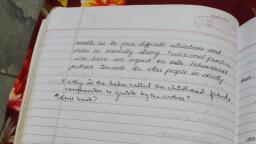 enable us to face difficult situations and
make us mentally strong. Traditional practices
also have an impact on our behavioural
pattern towards the other people in society
Q. Why is the baker called the childhood friend,
companion & guide by the author?